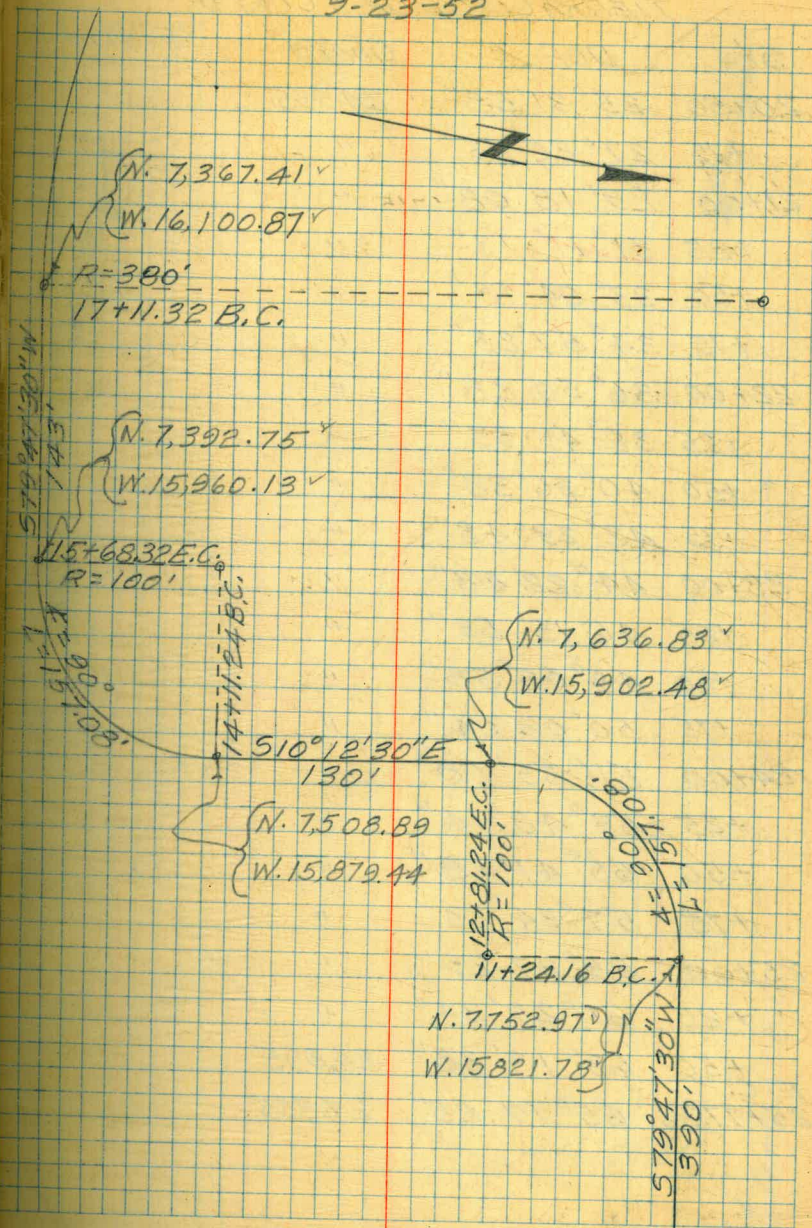 9-23-52
N
N. 7,367.41 ✓
W. 16,100.87 ✓
R=380'
17+11.32 B.C.
S79°47'30"W
143'
N. 7,392.75 ✓
W. 15,960.13 ✓
15+68.32 E.C.
R=100'
14+11.24 B.C.
Δ=90°
N. 7,636.83 ✓
W. 15,902.48 ✓
S10°12'30"E
130'
N. 7,508.89
W. 15,879.44
12+81.24 E.C.
R=100'
Δ=90°
L=157.08'
11+24.16 B.C.
N. 7,752.97 ✓
W. 15821.78 ✓
S79°47'30"W
390'